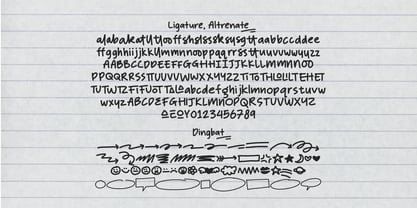 Ligature, Altrenate
alabakatUtlooffshslssksysgttaabbccddee
ffgghhiijjkkLLmmnnooppqqrrssttuuvvwwyyzz
AABBCCDDEEFFGGHHIIJJKKLLMMNNOO
PPQQRRSSTTUUVVWWXXYYZZTITGTHLOLLTEHET
TUTWTZFIFUOTTaLoabcdefghijklmnopqrstuv
wxyzABCDEFGHIJKLMNOPQRSTUVWXYZ
0123456789
Dingbat